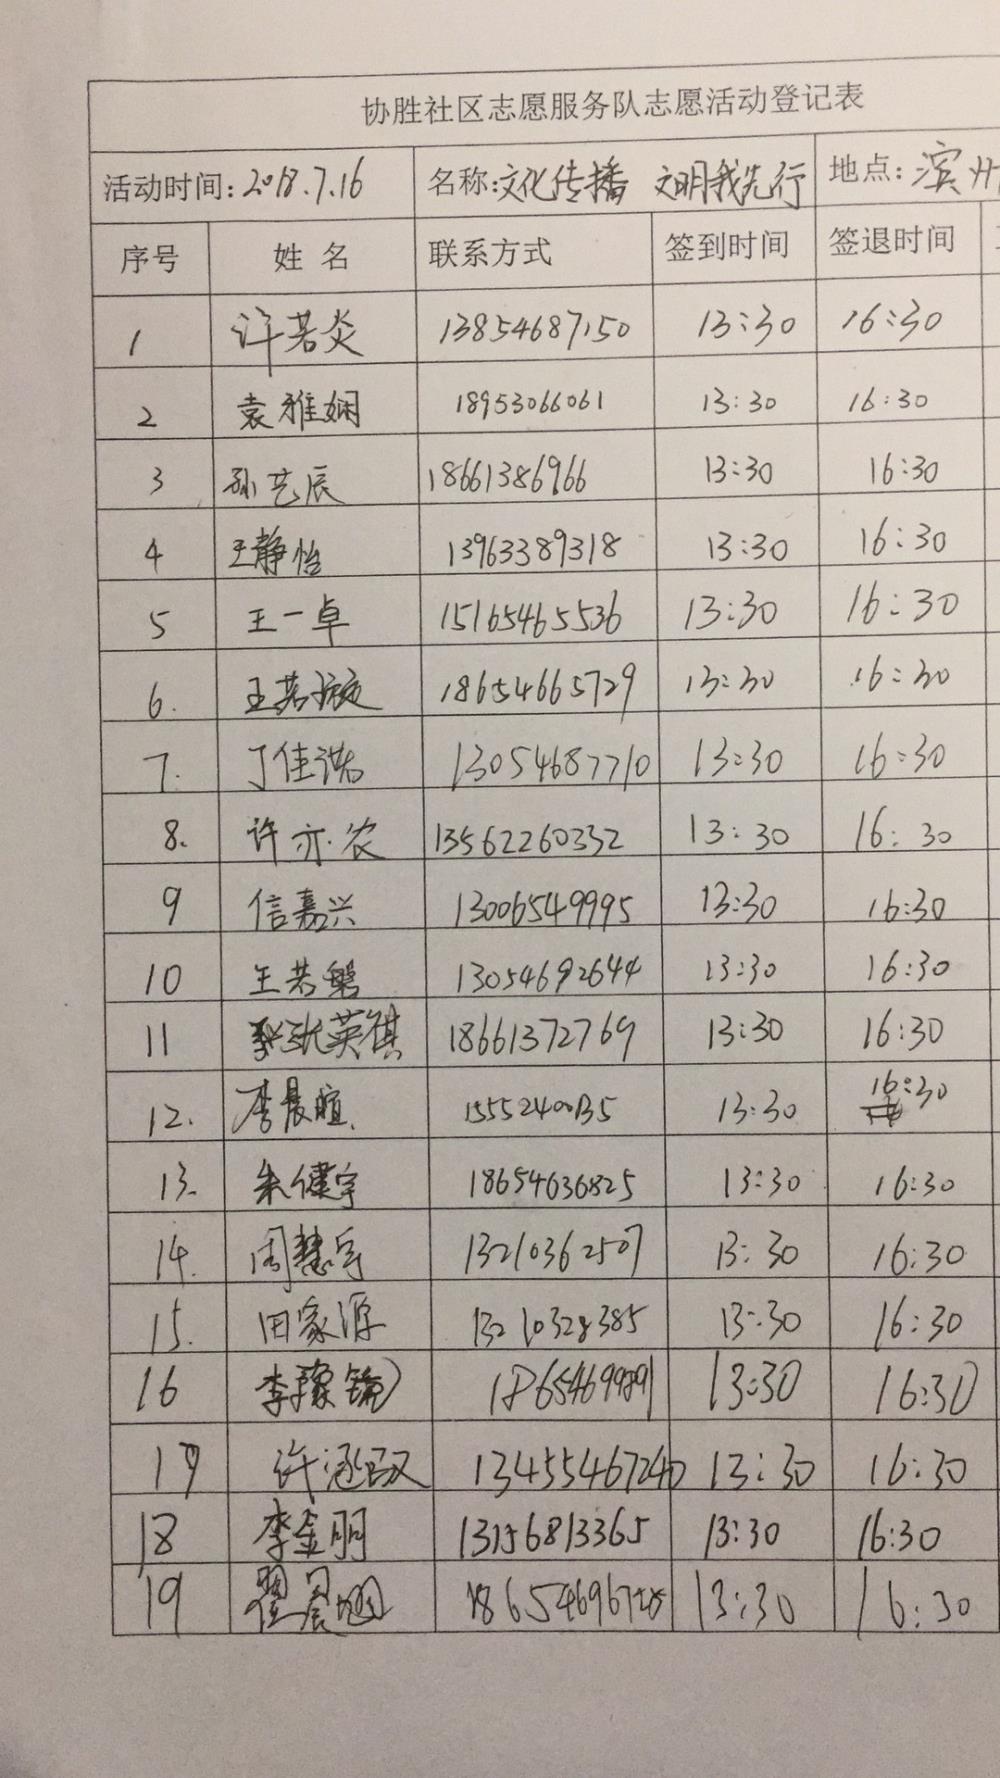 协胜社区志愿服务队志愿活动登记表
活动时间:2018.7.16 名称:文化传播 文明我先行 地点:滨州
序号 姓名 联系方式 签到时间 签退时间
1 许若炎 13854687150 13:30 16:30
2 袁雅娴 18953066061 13:30 16:30
3 孙艺辰 18661386966 13:30 16:30
4 王静怡 13963389318 13:30 16:30
5 王一卓 15165465536 13:30 16:30
6. 18654665729 13:30 16:30
7. 丁佳诺 13054687710 13:30 16:30
8. 许亦农 13562260332 13:30 16:30
9 信嘉兴 13006549995 13:30 16:30
10 13054692644 13:30 16:30
11 张英祺 18661372769 13:30 16:30
12. 李晨暄. 13:30 16:30
13. 朱健宇 18654636825 13:30 16:30
14. 周慧宇 13210362507 13:30 16:30
15. 田家源 13210328385 13:30 16:30
16 13:30 16:30
17 13455467240 13:30 16:30
18 李金明 13156813365 13:30 16:30
19 13:30 16:30